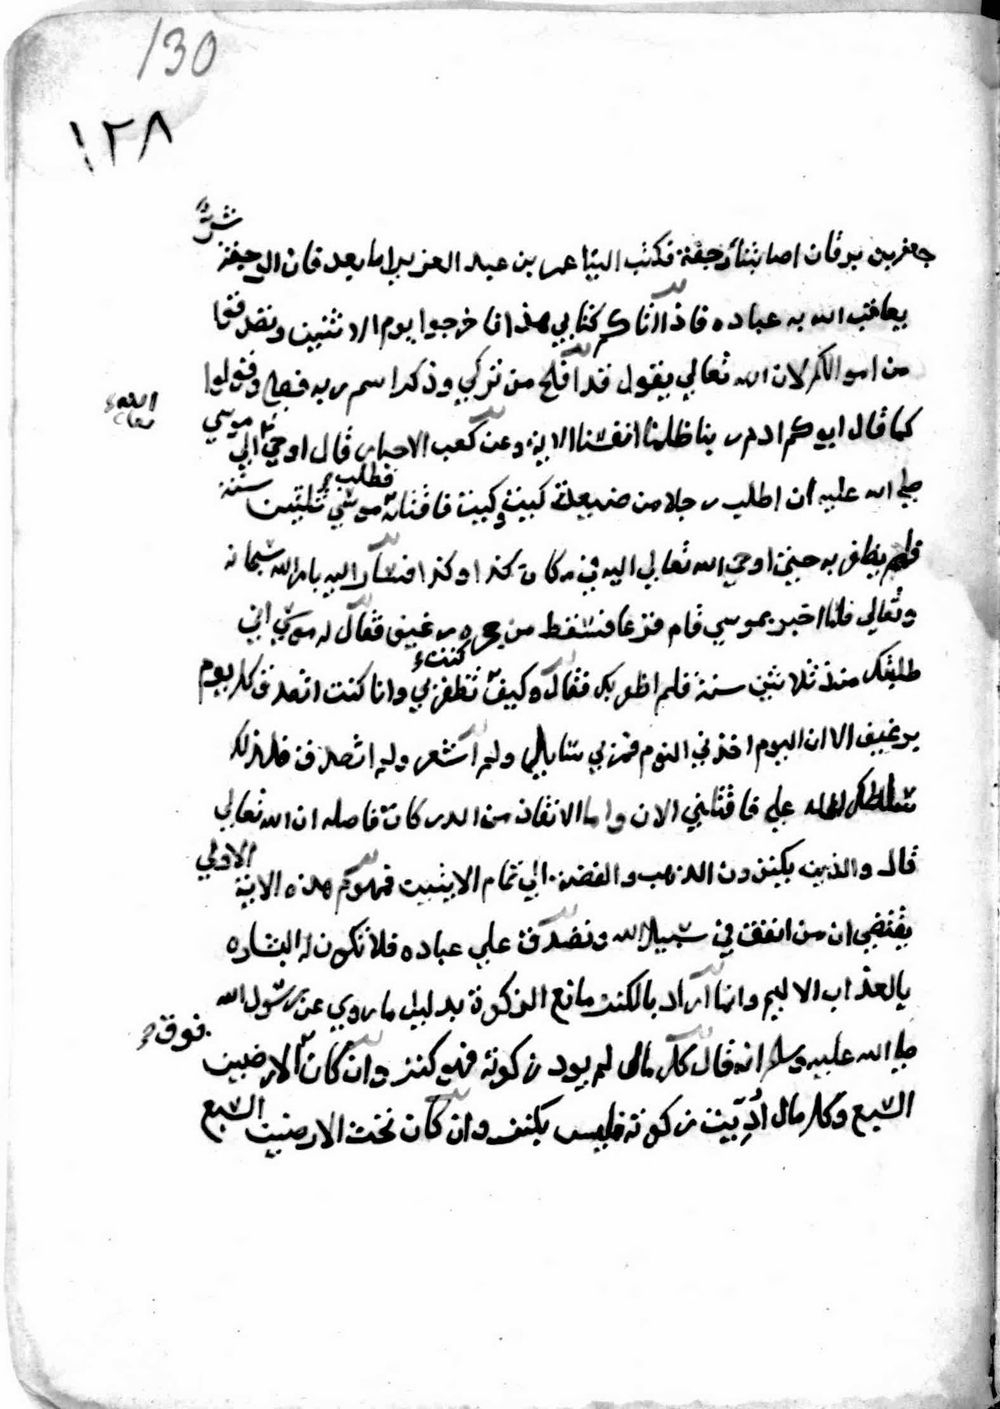 130
١٢٨
جعفر بن برقان اصابتنا رجفة فكتب الينا عمر بن عبد العزيز اما بعد فان الرجفة شئ
يعاقب الله به عباده فاذا اتاكم كتابي هذا فاخرجوا يوم الاثنين وتصدقوا
من اموالكم لان الله تعالي يقول قد افلح من تزكي وذكر اسم ربه فصلي وقولوا
كما قال ابوكم ادم ربنا ظلمنا انفسنا الاية وعن كعب الاحبار قال اوحي الله الي موسي
صلي الله عليه ان اطلب رجلا من صنيعته كيت وكيت فاقتله فطلبه موسي ثلثين سنة
فلم يظفر به حتي اوحي الله تعالي اليه في مكان كذا وكذا فسار اليه بامر الله سبحانه
وتعالي فلما اخبر بموسي قام فزعا فسقط من حجره رغيف فقال له موسي اني
طلبتك منذ ثلاثين سنة فلم اظفر بك فقال وكيف كنت تظفر بي وانا كنت اتصدق كل يوم
برغيف الا ان اليوم اخذني النوم فمر بي سايل ولم اشعر ولم اتصدق فلهذلك
سلطك الله علي فاقتلني الان واما الانفاق من الدركات فاصله ان الله تعالي
قال والذين يكنزون الذهب والفضة الي تمام الايتين فمفهوم هذه الاية الاولي
يقتضي ان من انفق في سبيل الله وتصدق علي عباده فلا تكون له البشاره
بالعذاب الاليم وانما اراد بالكنز مانع الزكوة بدليل ما روي عن رسول الله
صلي الله عليه وسلم انه قال كل مال لم يود زكوته فهو كنز وان كان فوق الارضين
السبع وكل مال أدِّيت زكوته فليس بكنز وان كان تحت الارضين السبع